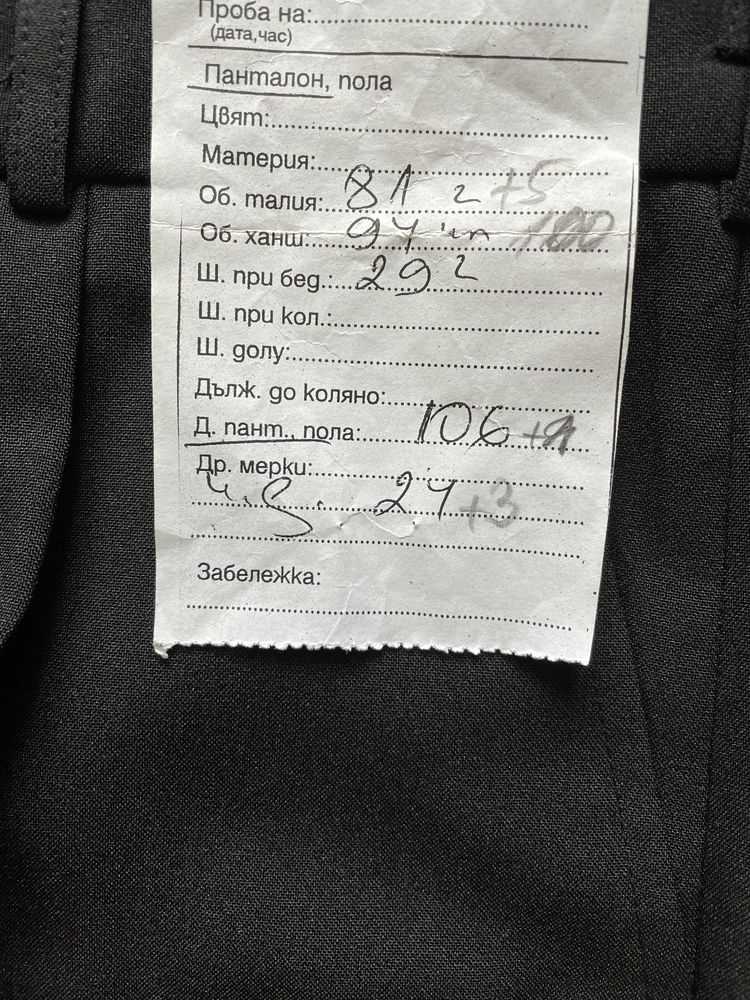 Проба на:
(дата,час)
Панталон, пола
Цвят:
Материя:
Об. талия: 81 г +5
Об. ханш: 94 100
Ш. при бед.: 29 г
Ш. при кол.:
Ш. долу:
Дълж. до коляно:
Д. пант., пола: 106
Др. мерки:
24 +3
Забележка: